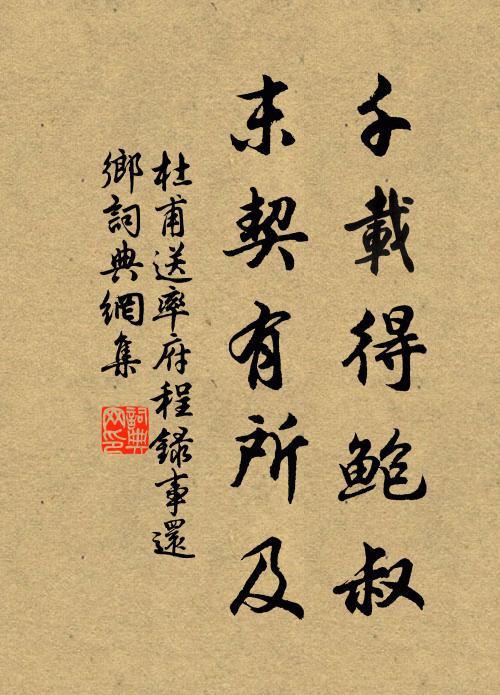 千載得鮑叔
末契有所及
杜甫送率府程錄事還
鄉詞典網集
詞典网印